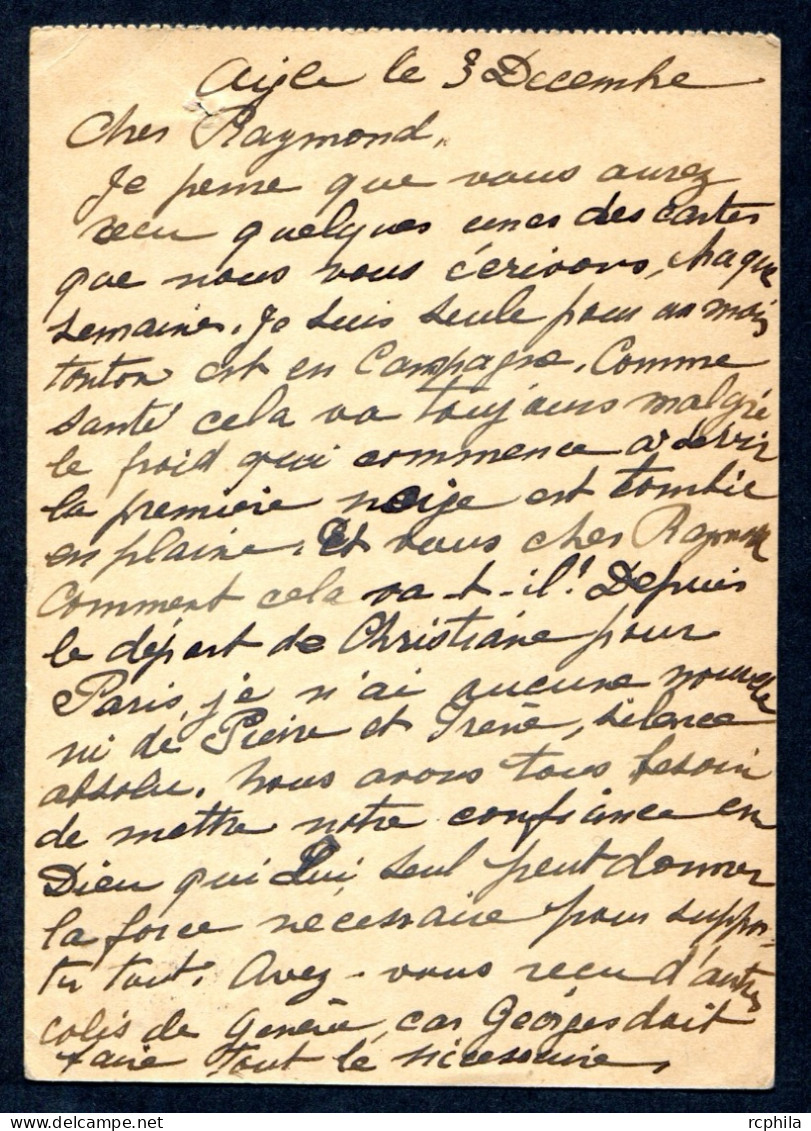 Aigle le 3 Decembre
Cher Raymond,
Je pense que vous aurez
recu quelques unes des cartes
que nous vous écrivons, chaque
semaine. Je suis seule pour un mois
tonton est en Campagne. Comme
santé cela va toujours malgré
le froid qui commence à sévir
la premiere neige est tombée
en plaine. Et vous cher Raymond
Comment cela va-t-il! Depuis
le départ de Christiane pour
Paris, je n'ai aucune nouvelle
ni de Pierre et Irène, silence
absolu. Nous avons tous besoin
de mettre notre confiance en
Dieu qui Lui seul peut donner
la force nécessaire pour suppor-
ter tout. Avez-vous recu d'autres
colis de Genève, car Georges doit
faire tout le nécessaire.
rcphila